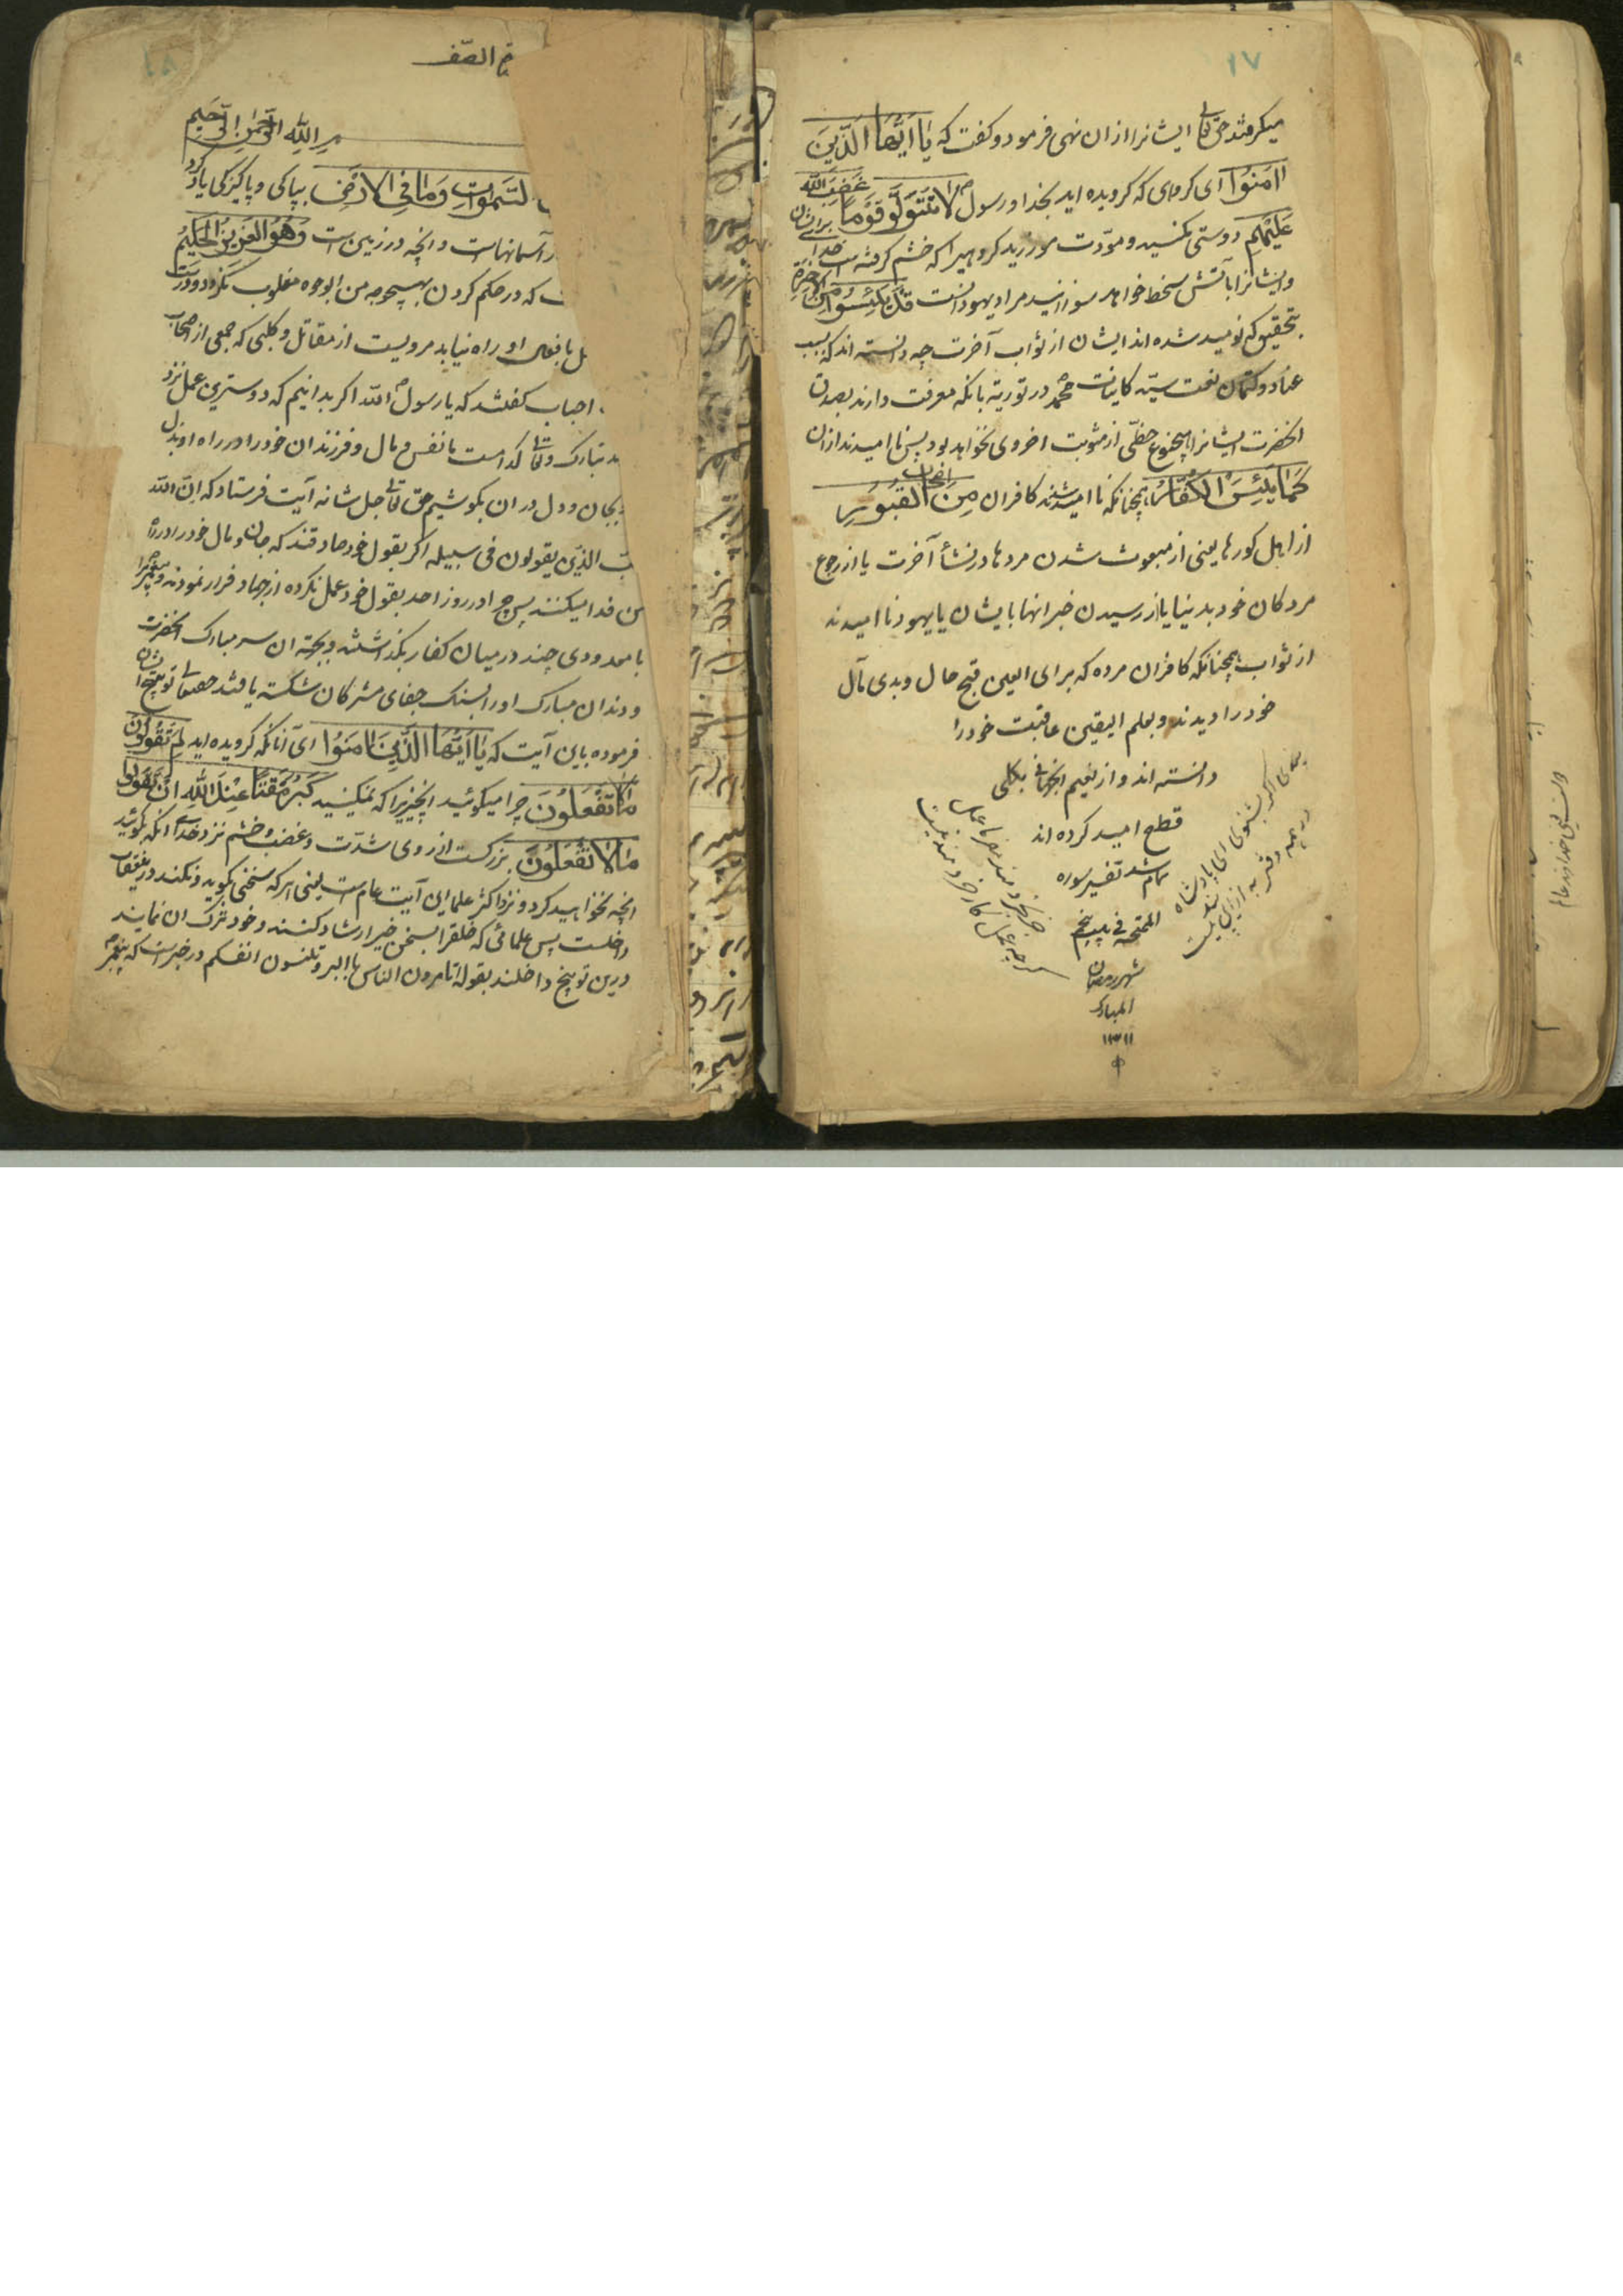 ۱۷
میکرفتند حق تعالی ایشانرا ازان نهی فرمود و کفت که یٰا اَیُّهَا الَّذینَ
اٰمَنُوا ای کروهی که کرویده اید بخدا و رسول لا تَتَوَلَّوْا قَوْمًا غَضِبَ اللّٰه
عَلَیْهِمْ دوستی مکنید و مودّت مورزید کروهیرا که خشم کرفته است خدا برایشان
وایشانرا بآتش سخط خواهد سوزانید مراد یهودانست قَدْ یَئِسُوا مِنَ الْاٰخِرَةِ
بتحقیق که نومید شده اند ایشان از ثواب آخرت چه دانسته اند که بسبب
عناد و کتمان نعت سیّد کاینات محمّد در توریة بانکه معرفت دارند بصدق
انحضرت ایشانرا بهیچنوع حظّی از مثوبت اخروی نخواهد بود پس ناامیدند ازان
کَمٰا یَئِسَ الْکُفّٰارُ همچنانکه ناامید شدند کافران مِنْ اَصْحٰابِ الْقُبُورِ
از اهل کورها یعنی از مبعوث شدن مردها در نشأ آخرت یا از رجوع
مردکان خود بدنیا یا از رسیدن خبر انها بایشان یا یهود ناامیدند
از ثواب همچنانکه کافران مرده که برای العین قبح حال و بدی مآل
خود را دیدند و بعلم الیقین عاقبت خود را
دانسته اند و از نعیم انجهانی بکلی
قطع امید کرده اند
تمام شد تفسیر سوره
الممتحنه فی بیست پنجم
شهر رمضان
المبارک
۱۳۱۱
اکر بشنوی ای پادشاه
در همه دفتر به ازین پند نیست
جز بخردمند مفرما عمل
کرچه عمل کار خردمند نیست
۱۸
الصّف
اللّٰهِ الرَّحْمٰنِ الرَّحیمِ
السَّمٰوٰاتِ وَمٰا فِی الْاَرْضِ بپاکی و پاکیزکی یاد کرد
آسمانهاست وانچه در زمین است وَهُوَ الْعَزیزُ الْحَکیمُ
که در حکم کردن بهیچوجه من الوجوه مغلوب نکردد و درست
بافعال او راه نیابد مرویست از مقاتل و کلبی که جمعی از اصحاب
احباب کفتند که یا رسول اللّه اکر بدانیم که دوسترین عمل نزد
تبارک وتعالی کدامست ما نفس و مال و فرزندان خود را در راه او بذل
بجان و دل در ان بکوشیم حق تعالی جل شانه آیت فرستاد که ان اللّه
الذین یقولون فی سبیله اکر بقول خود صادقند که جان و مال خود را در راه
من فدا میکنند پس چرا در روز احد بقول خود عمل نکرده از جهاد فرار نمودند و پیغمبر مرا
با معدودی چند در میان کفار بکذاشتند و بجهة ان سر مبارک انحضرت
و دندان مبارک او را بسنک جفای مشرکان شکسته یافتند حقتعالی توبیخ ایشان
فرموده باین آیت که یٰا اَیُّهَا الَّذینَ اٰمَنُوا ای آنانکه کرویده اید لِمَ تَقُولُونَ
مٰا لٰا تَفْعَلُونَ چرا میکوئید انچیزیرا که نمیکنید کَبُرَ مَقْتًا عِنْدَ اللّٰهِ اَنْ تَقُولُوا
مٰا لٰا تَفْعَلُونَ بزرکست از روی شدّت و غضب و خشم نزد خدا انکه بکوئید
انچه نخواهید کرد و نزد اکثر علما این آیت عام است یعنی هر که سخنی بکوید و نکند درین عقاب
داخلست پس علمائی که خلقرا بسخن خیر ارشاد کنند و خود ترک ان نمایند
درین توبیخ داخلند بقوله اتامرون الناس بالبر و تنسون انفسکم و در خبر است که پیغمبر